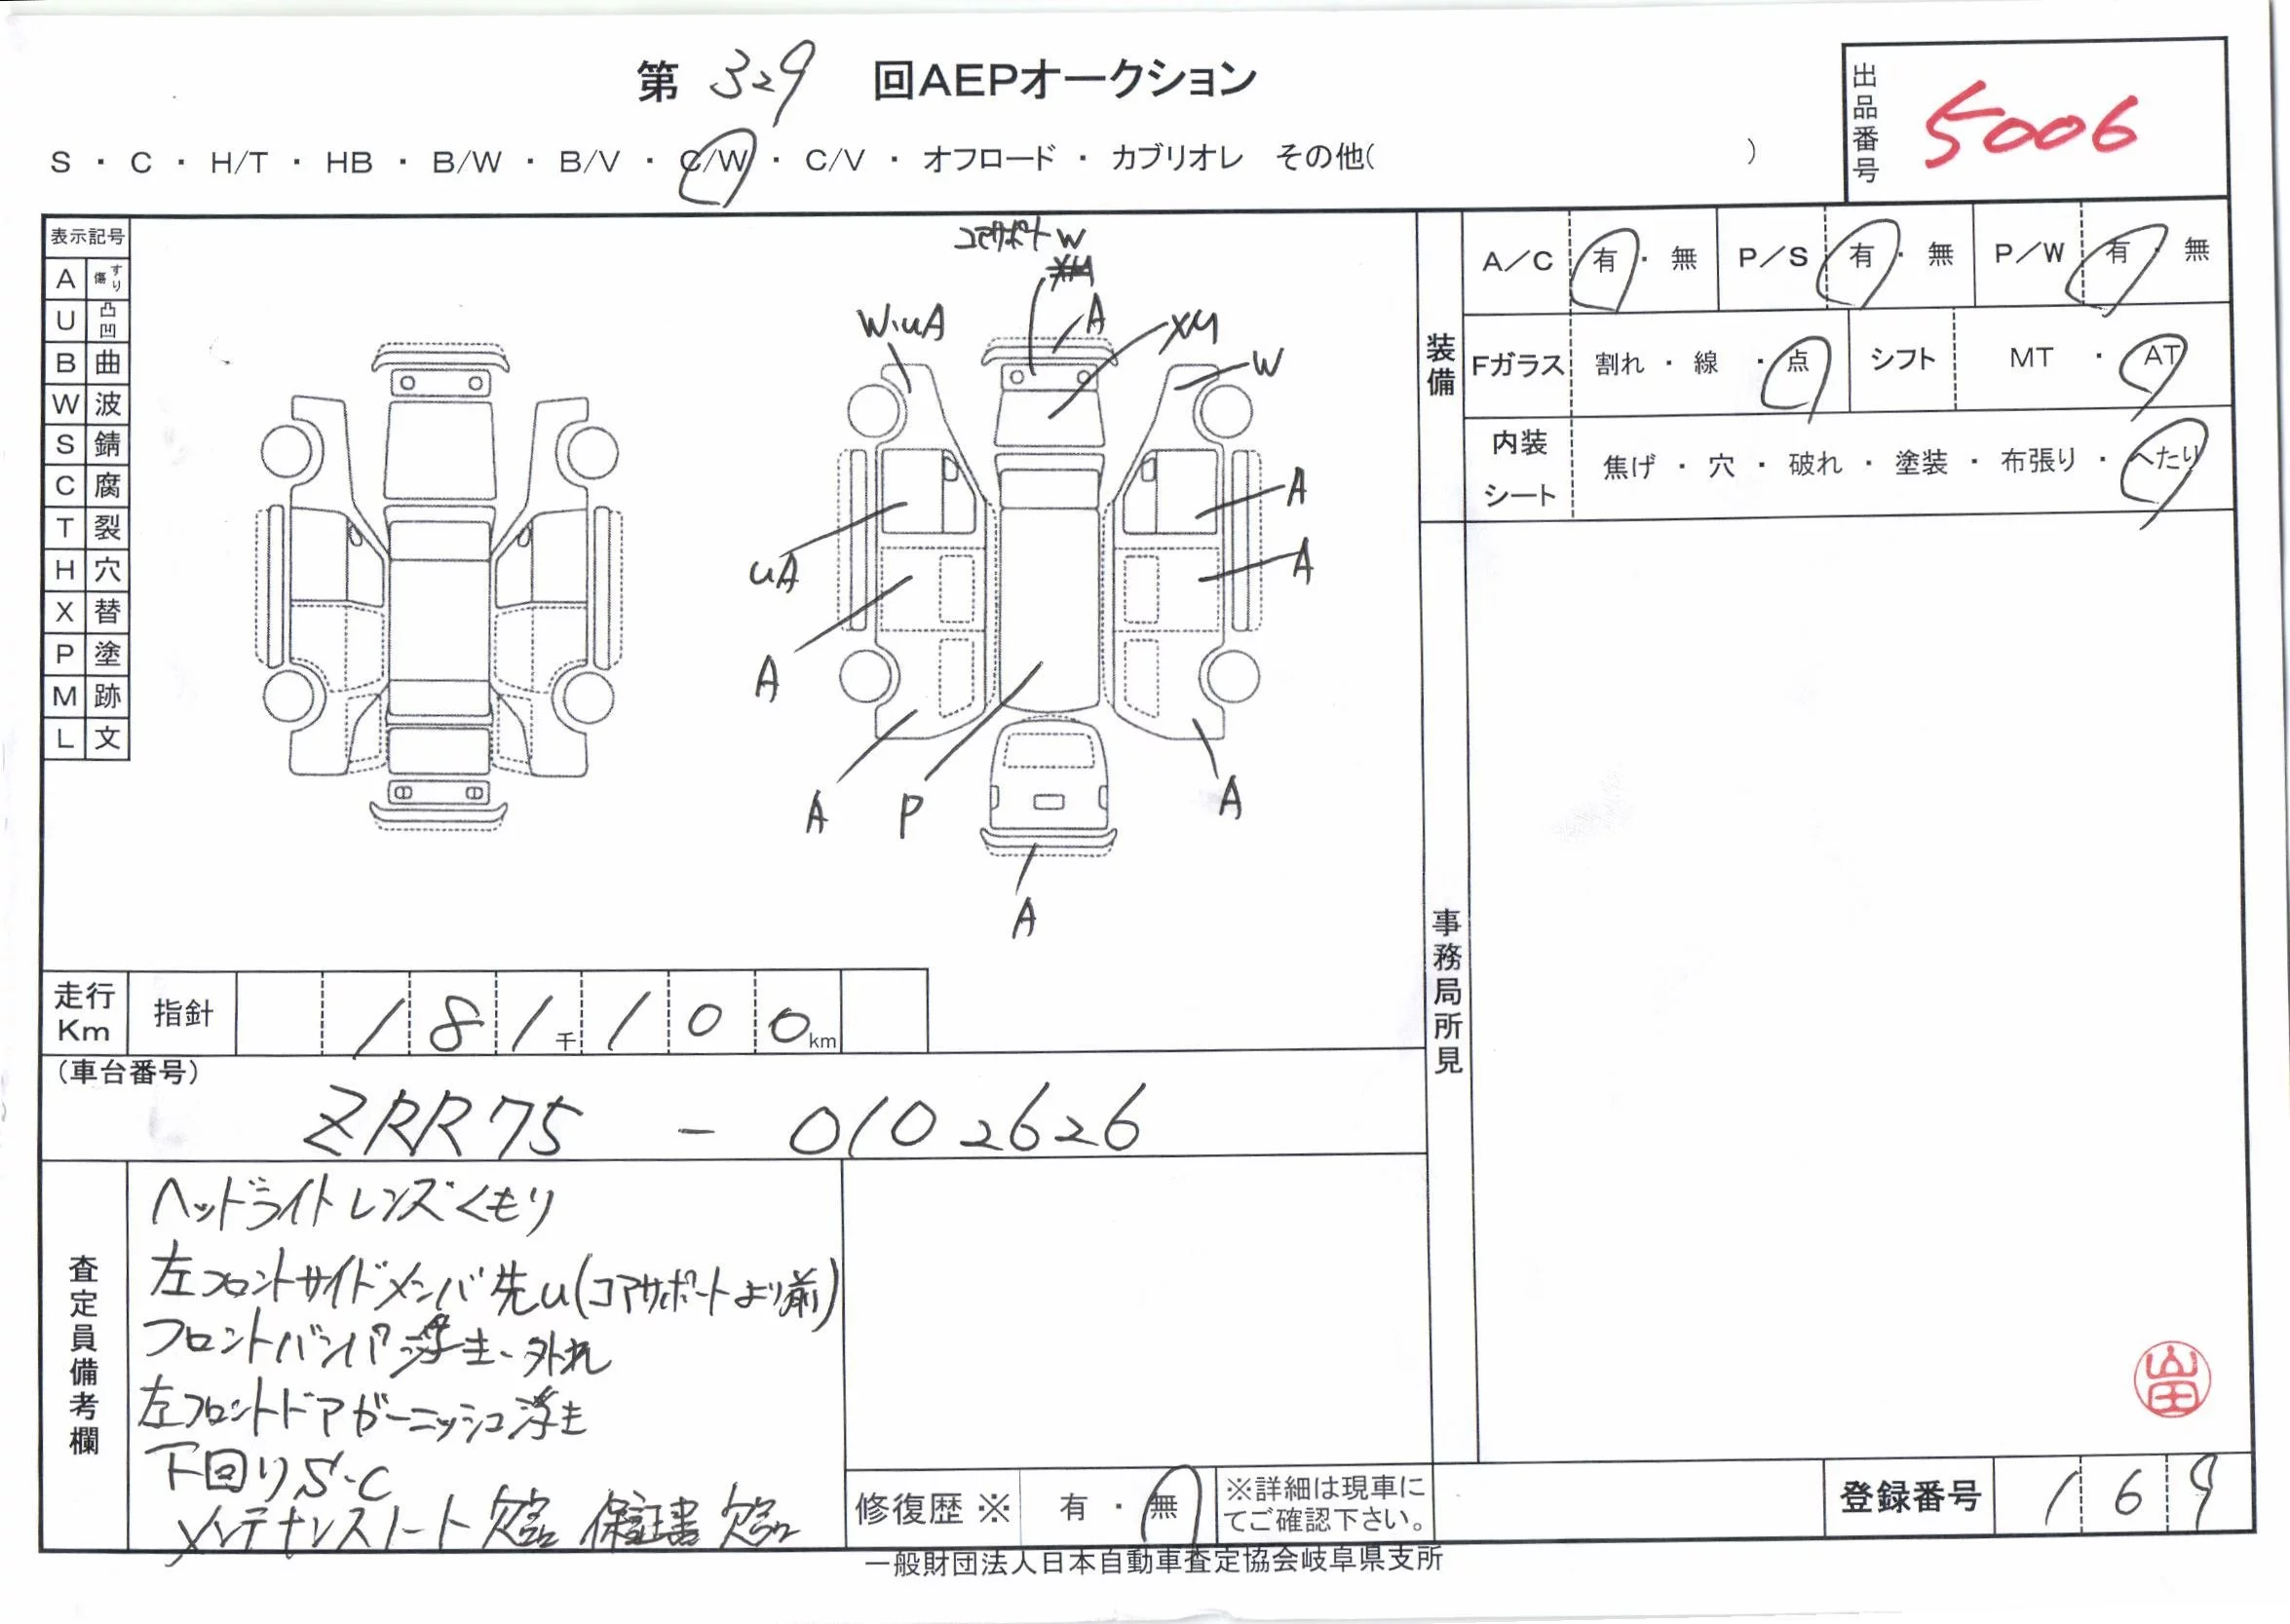 第 329 回AEPオークション
出品番号 5006
S ・ C ・ H/T ・ HB ・ B/W ・ B/V ・ C/W ・ C/V ・ オフロード ・ カブリオレ その他( )
表示記号
A すり傷
U 凸凹
B 曲
W 波
S 錆
C 腐
T 裂
H 穴
X 替
P 塗
M 跡
L 文
コアサポートW
W・UA
A
XM
W
UA
A
A
A
A
P
A
A
装備
A/C 有 ・ 無 P/S 有 ・ 無 P/W 有 ・ 無
Fガラス 割れ ・ 線 ・ 点 シフト MT ・ AT
内装シート 焦げ ・ 穴 ・ 破れ ・ 塗装 ・ 布張り ・ へたり
事務局所見
走行Km 指針 181千100km
(車台番号)
ZRR75 - 0102626
査定員備考欄
ヘッドライトレンズくもり
左フロントサイドメンバ先U(コアサポートより前)
フロントバンパ浮き・外れ
左フロントドアガーニッシュ浮き
下回りS・C
メンテナンスノート欠品 保証書欠品
修復歴※ 有 ・ 無
※詳細は現車に
てご確認下さい。
登録番号 169
一般財団法人日本自動車査定協会岐阜県支所